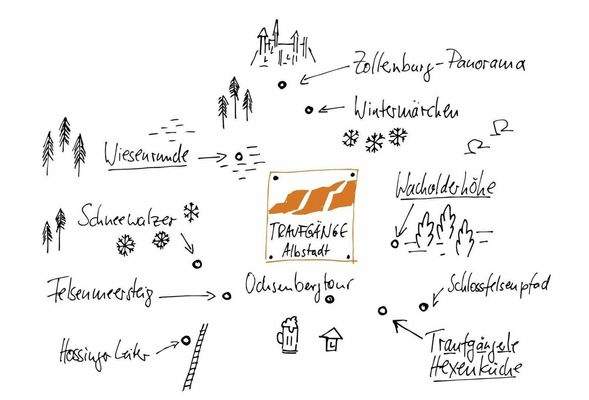 Zollernburg-Panorama
Wintermärchen
Wiesenrunde
Wacholderhöhe
Schneewalzer
TRAUFGÄNGE
Albstadt
Felsenmeersteig
Ochsenbergtour
Schlossfelsenpfad
Hossinger Leiter
Traufgängele
Hexenküche